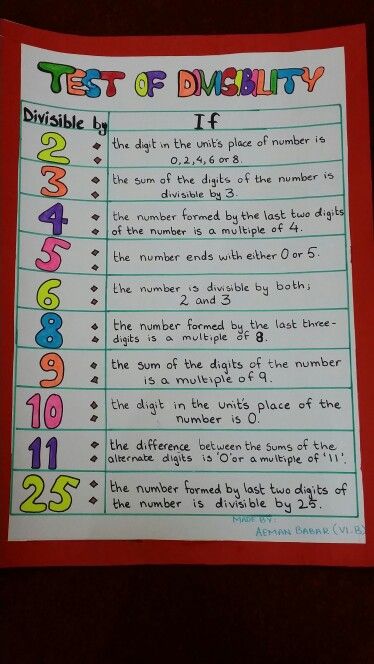 TEST OF DIVISIBILITY
Divisible by If
2 the digit in the unit's place of number is
0, 2, 4, 6 or 8.
3 the sum of the digits of the number is
divisible by 3.
4 the number formed by the last two digits
of the number is a multiple of 4.
5 the number ends with either 0 or 5.
6 the number is divisible by both;
2 and 3
8 the number formed by the last three-
digits is a multiple of 8.
9 the sum of the digits of the number
is a multiple of 9.
10 the digit in the unit's place of the
number is 0.
11 the difference between the sums of the
alternate digits is '0' or a multiple of '11'.
25 the number formed by last two digits of
the number is divisible by 25.
MADE BY:
AEMAN BABAR (VI.B)